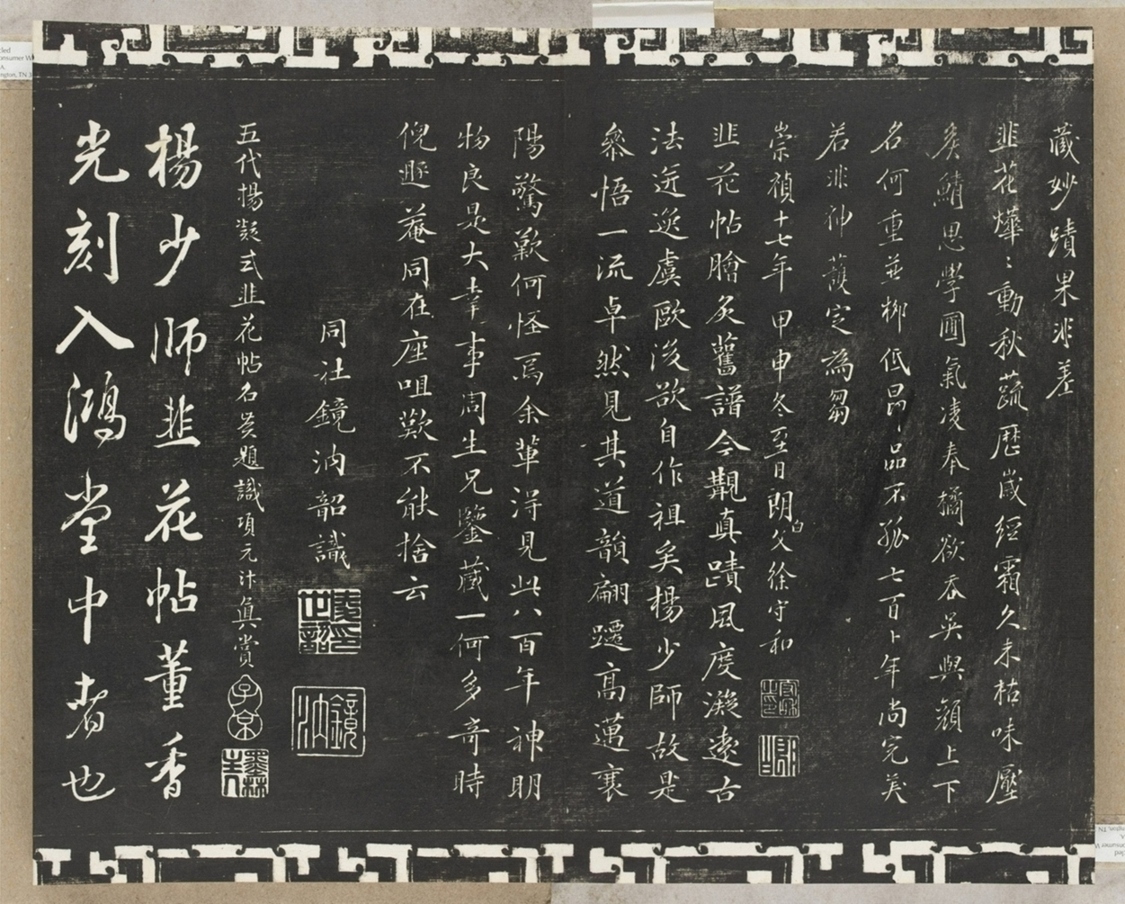 藏妙蹟果非差
韭花燁〻動秋蔬歷歲經霜久未枯味壓
矦鯖思學圃氣凌奉橘欲吞吳與顏上下
名何重並柳低昂品不孤七百卜年尚完美
若非神護定為芻
崇禎十七年甲申冬至日朗白父徐守和
韭花帖膾炙舊譜今觀真蹟風度凝遠古
法近逸虞歐後欲自作祖矣楊少師故是
參悟一流卓然見其道韻翩躚高邁襄
陽驚歎何怪焉余輩得見此八百年神明
物良是大幸事周生兄鑒藏一何多奇時
倪遯菴同在座咀歎不能捨云
同社鏡汭韶識
五代楊凝式韭花帖名賢題識項元汴真賞
子京
墨林
楊少師韭花帖董香
光刻入鴻堂中者也